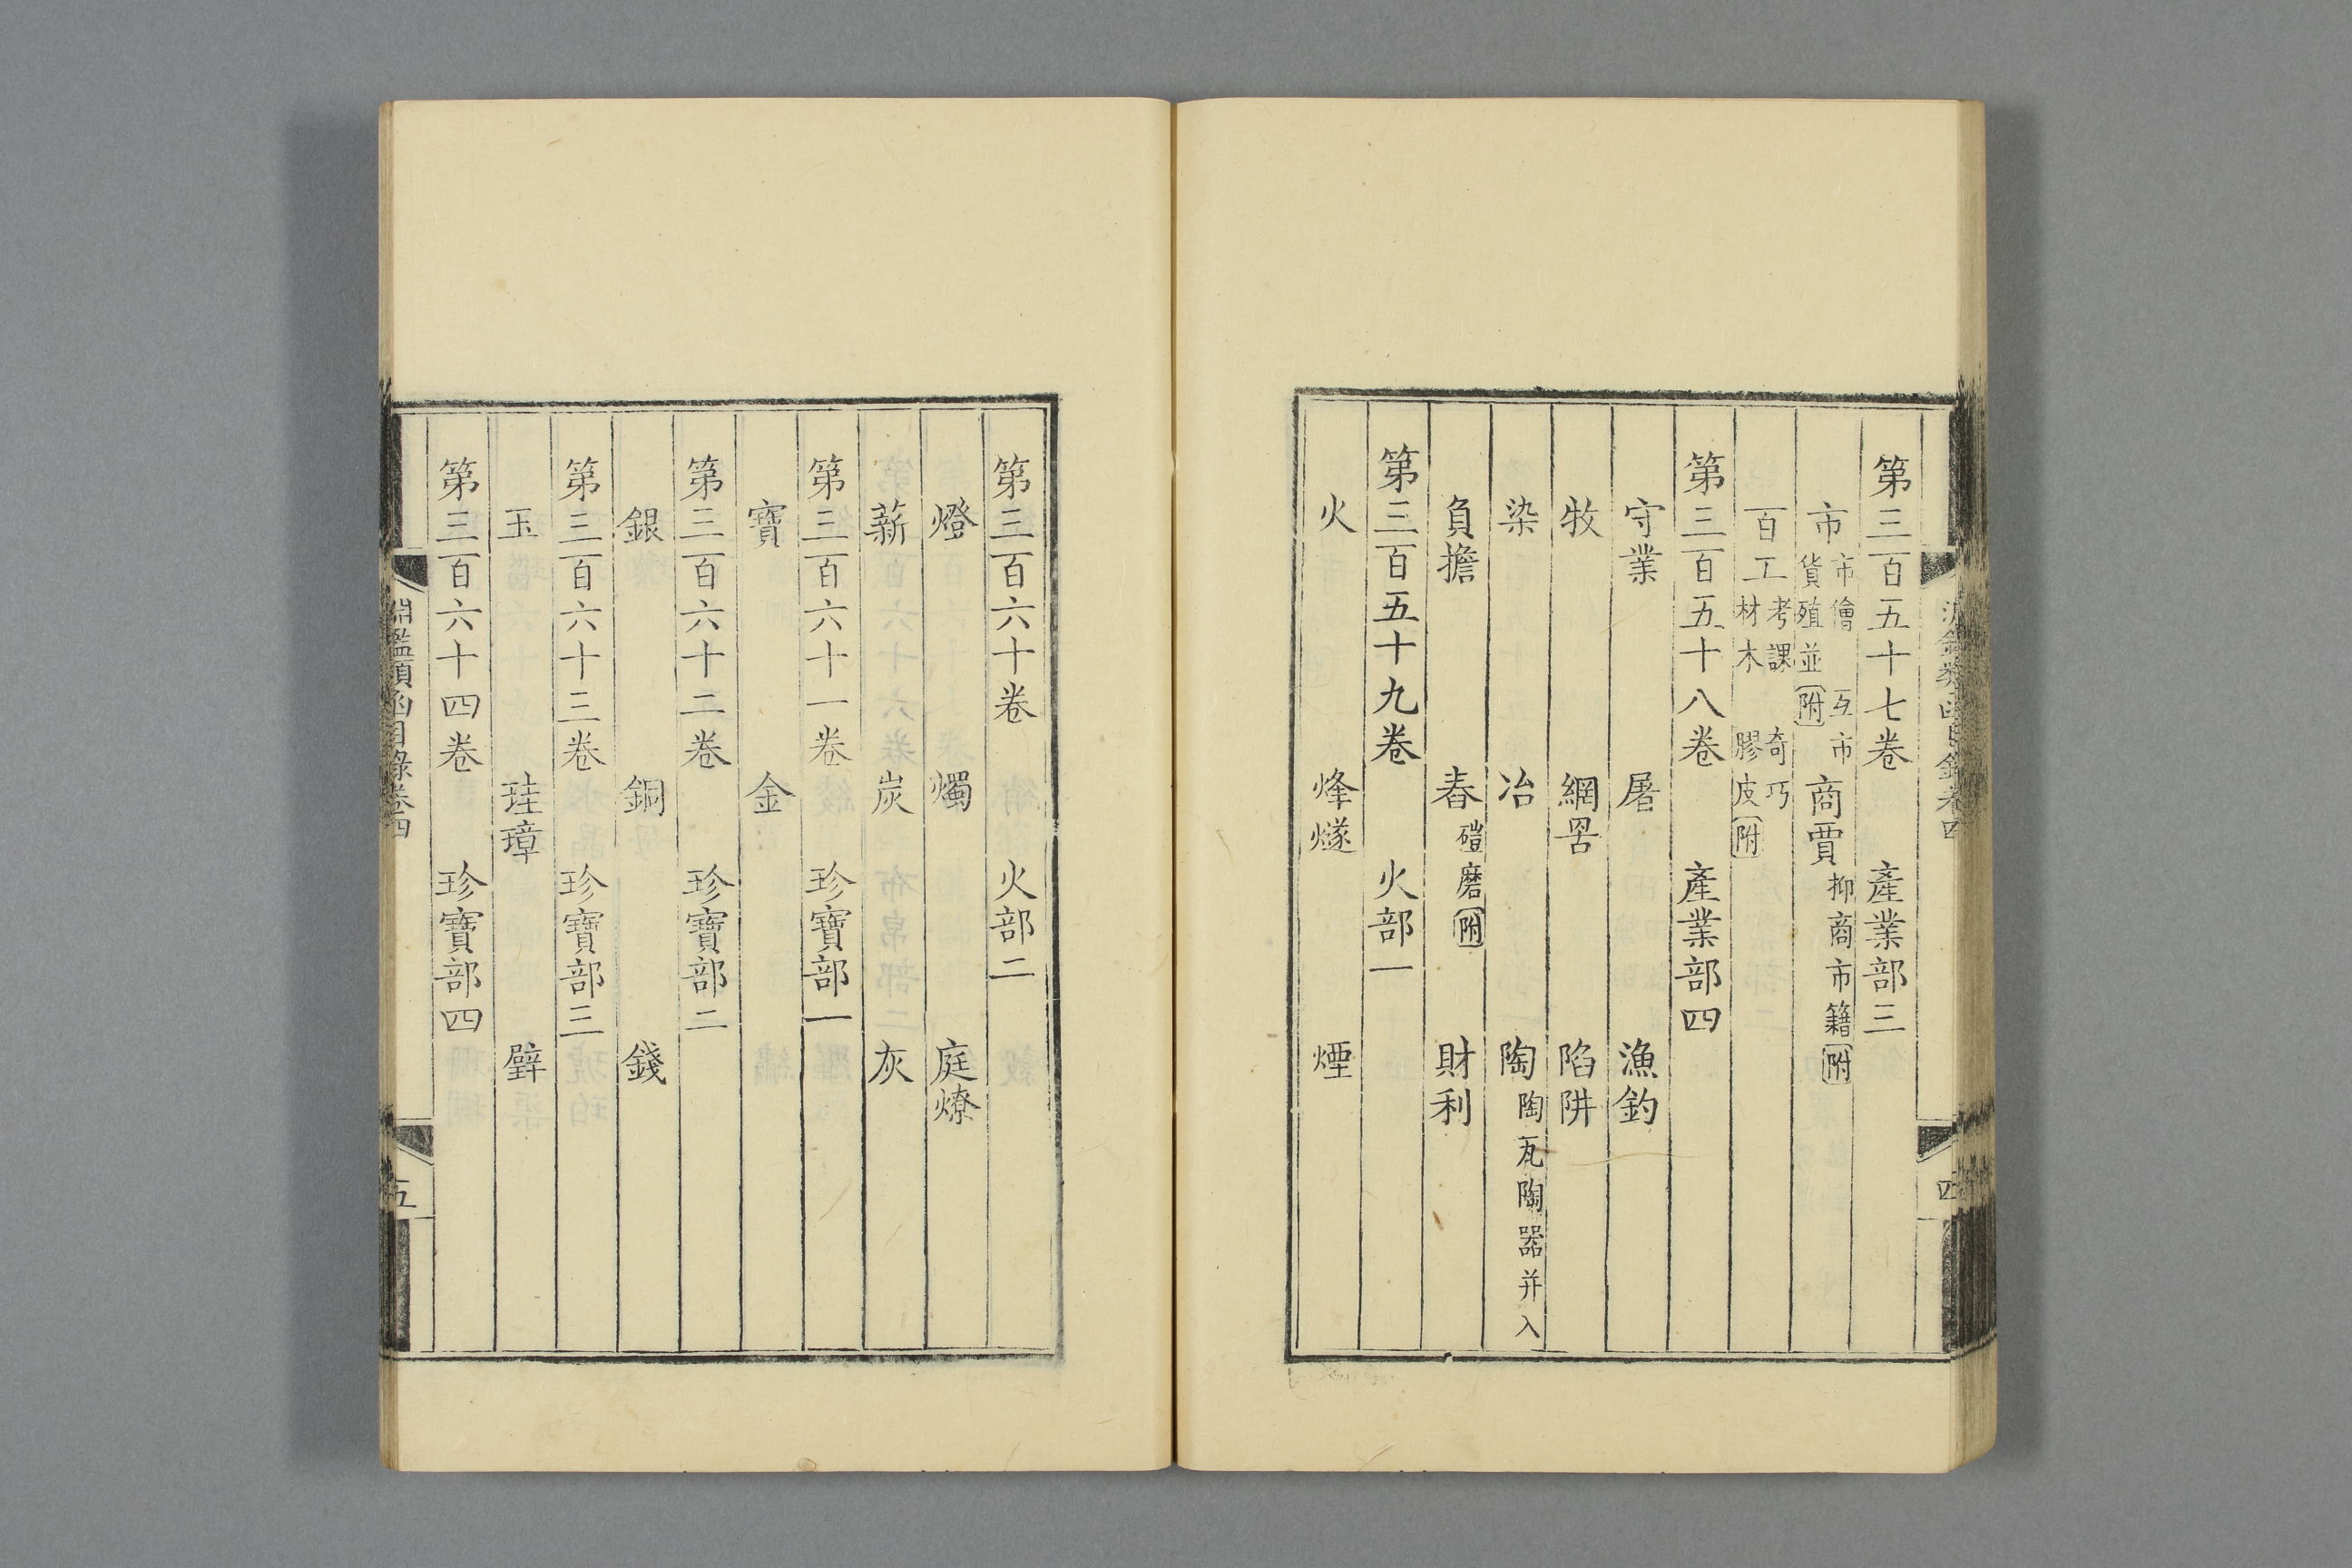 第三百五十七卷 產業部三
市 市儈 互市 貨殖並附 商賈 抑商市籍附
百工 考課 奇巧 材木 膠皮附
第三百五十八卷 產業部四
守業 屠 漁釣
牧 網罟 陷阱
染 冶 陶 陶瓦陶器并入
負擔 舂 磑磨附 財利
第三百五十九卷 火部一
火 烽燧 煙
第三百六十卷 火部二
燈 燭 庭燎
薪 炭 灰
第三百六十一卷 珍寶部一
寶 金
第三百六十二卷 珍寶部二
銀 銅 錢
第三百六十三卷 珍寶部三
玉 珪璋 璧
第三百六十四卷 珍寶部四
淵鑑類函目錄卷四 五